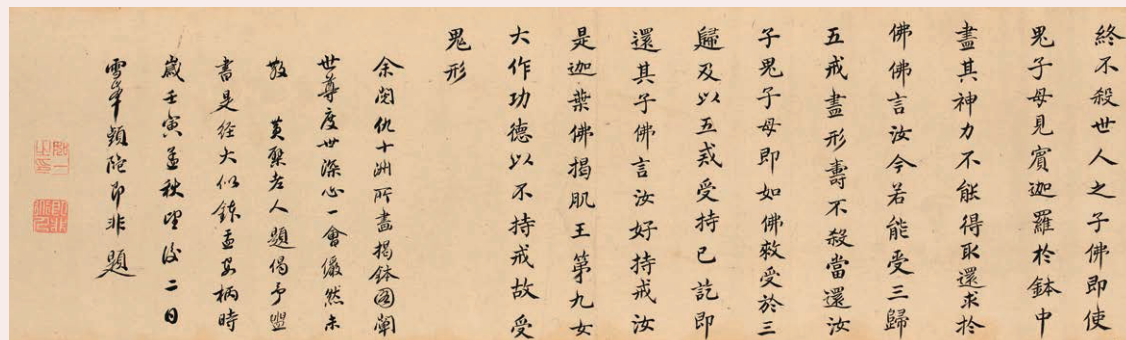 終不殺世人之子佛即使
鬼子母見賓迦羅於鉢中
盡其神力不能得取還求於
佛佛言汝今若能受三歸
五戒盡形壽不殺當還汝
子鬼子母即如佛敕受於三
歸及以五戒受持已訖即
還其子佛言汝好持戒汝
是迦葉佛揭肌王第九女
大作功德以不持戒故受
鬼形
余閱仇十洲所畫揭鉢圖闡
世尊度世深心一會儼然未
散 黄檗老人題偈予盥
書是经大似鉢盂安柄時
歲壬寅孟秋望後二日
雪峯頭陀即非題